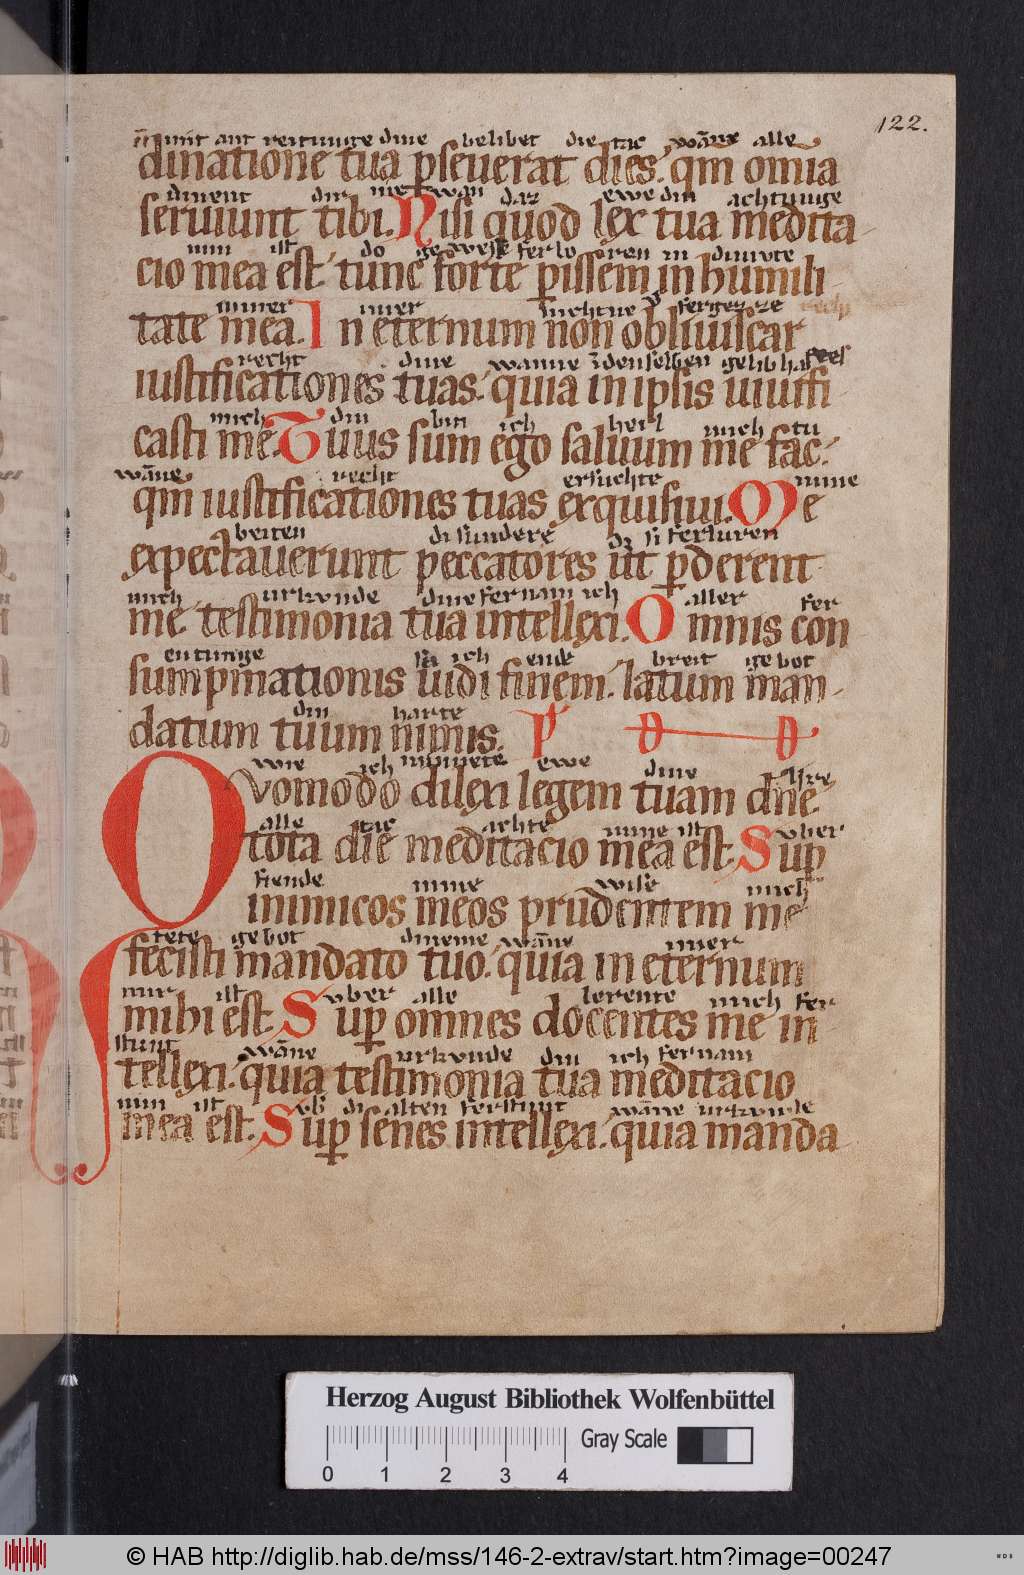 122.
mit ant reitunge dine belibet die tac wāne alle
dinatione tua pseuerat dies. qm omia
dinent dir niet wan daz ewe din achtunge
seruiunt tibi. Nisi quod lex tua medita
min ist do ge ferlo ren in diu
cio mea est tunc forte pissem in humili
imer nichtne fergezze
tate mea. In eternum non obliuiscar
recht dine wanne denselben gelibhaf
iustificationes tuas. quia in ipsis uiuifi
mich din bin ich heil mich tu
casti me. Tuus sum ego saluum me fac.
wāne recht ersuchte mine
qm iustificationes tuas exquisiui. Me
beiten di sundere dz si ferluren
expectauerunt peccatores ut pderent
mich urkunde dine fernam ich aller fer
me testimonia tua intellexi. Omnis con
entunge sa ich ende breit gebot
sumpmationis uidi finem. latum man
din harte
datum tuum nimis. P D D
wie ich minnete ewe dine
Quomodo dilexi legem tuam dne.
alle tac achte mine ist vber
tota die meditacio mea est. Sup
fiende mine wise mich
inimicos meos prudentem me
tete gebot dineme wāne imer
fecisti mandato tuo. quia in eternum
mir ist vber alle lerente mich fer
mihi est. Sup omnes docentes me in
stunt wāne urkunde din ich fernam
tellexi. quia testimonia tua meditacio
min ist vb di alten ferstunt wāne urkunde
mea est. Sup senes intellexi. quia manda
Herzog August Bibliothek Wolfenbüttel
Gray Scale
0 1 2 3 4
© HAB http://diglib.hab.de/mss/146-2-extrav/start.htm?image=00247